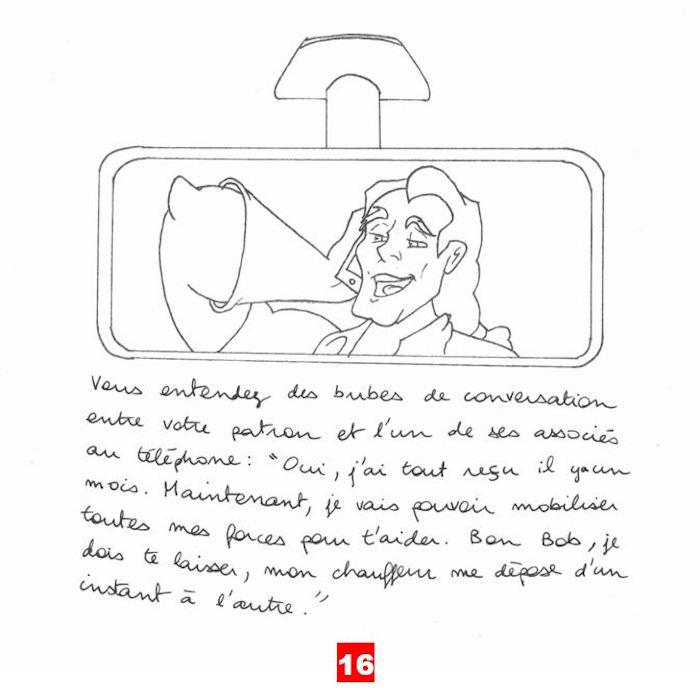 Vous entendez des bribes de conversation
entre votre patron et l'un de ses associés
au téléphone : "Oui, j'ai tout reçu il y a un
mois. Maintenant, je vais pouvoir mobiliser
toutes mes forces pour t'aider. Bon Bob, je
dois te laisser, mon chauffeur me dépose d'un
instant à l'autre."
16